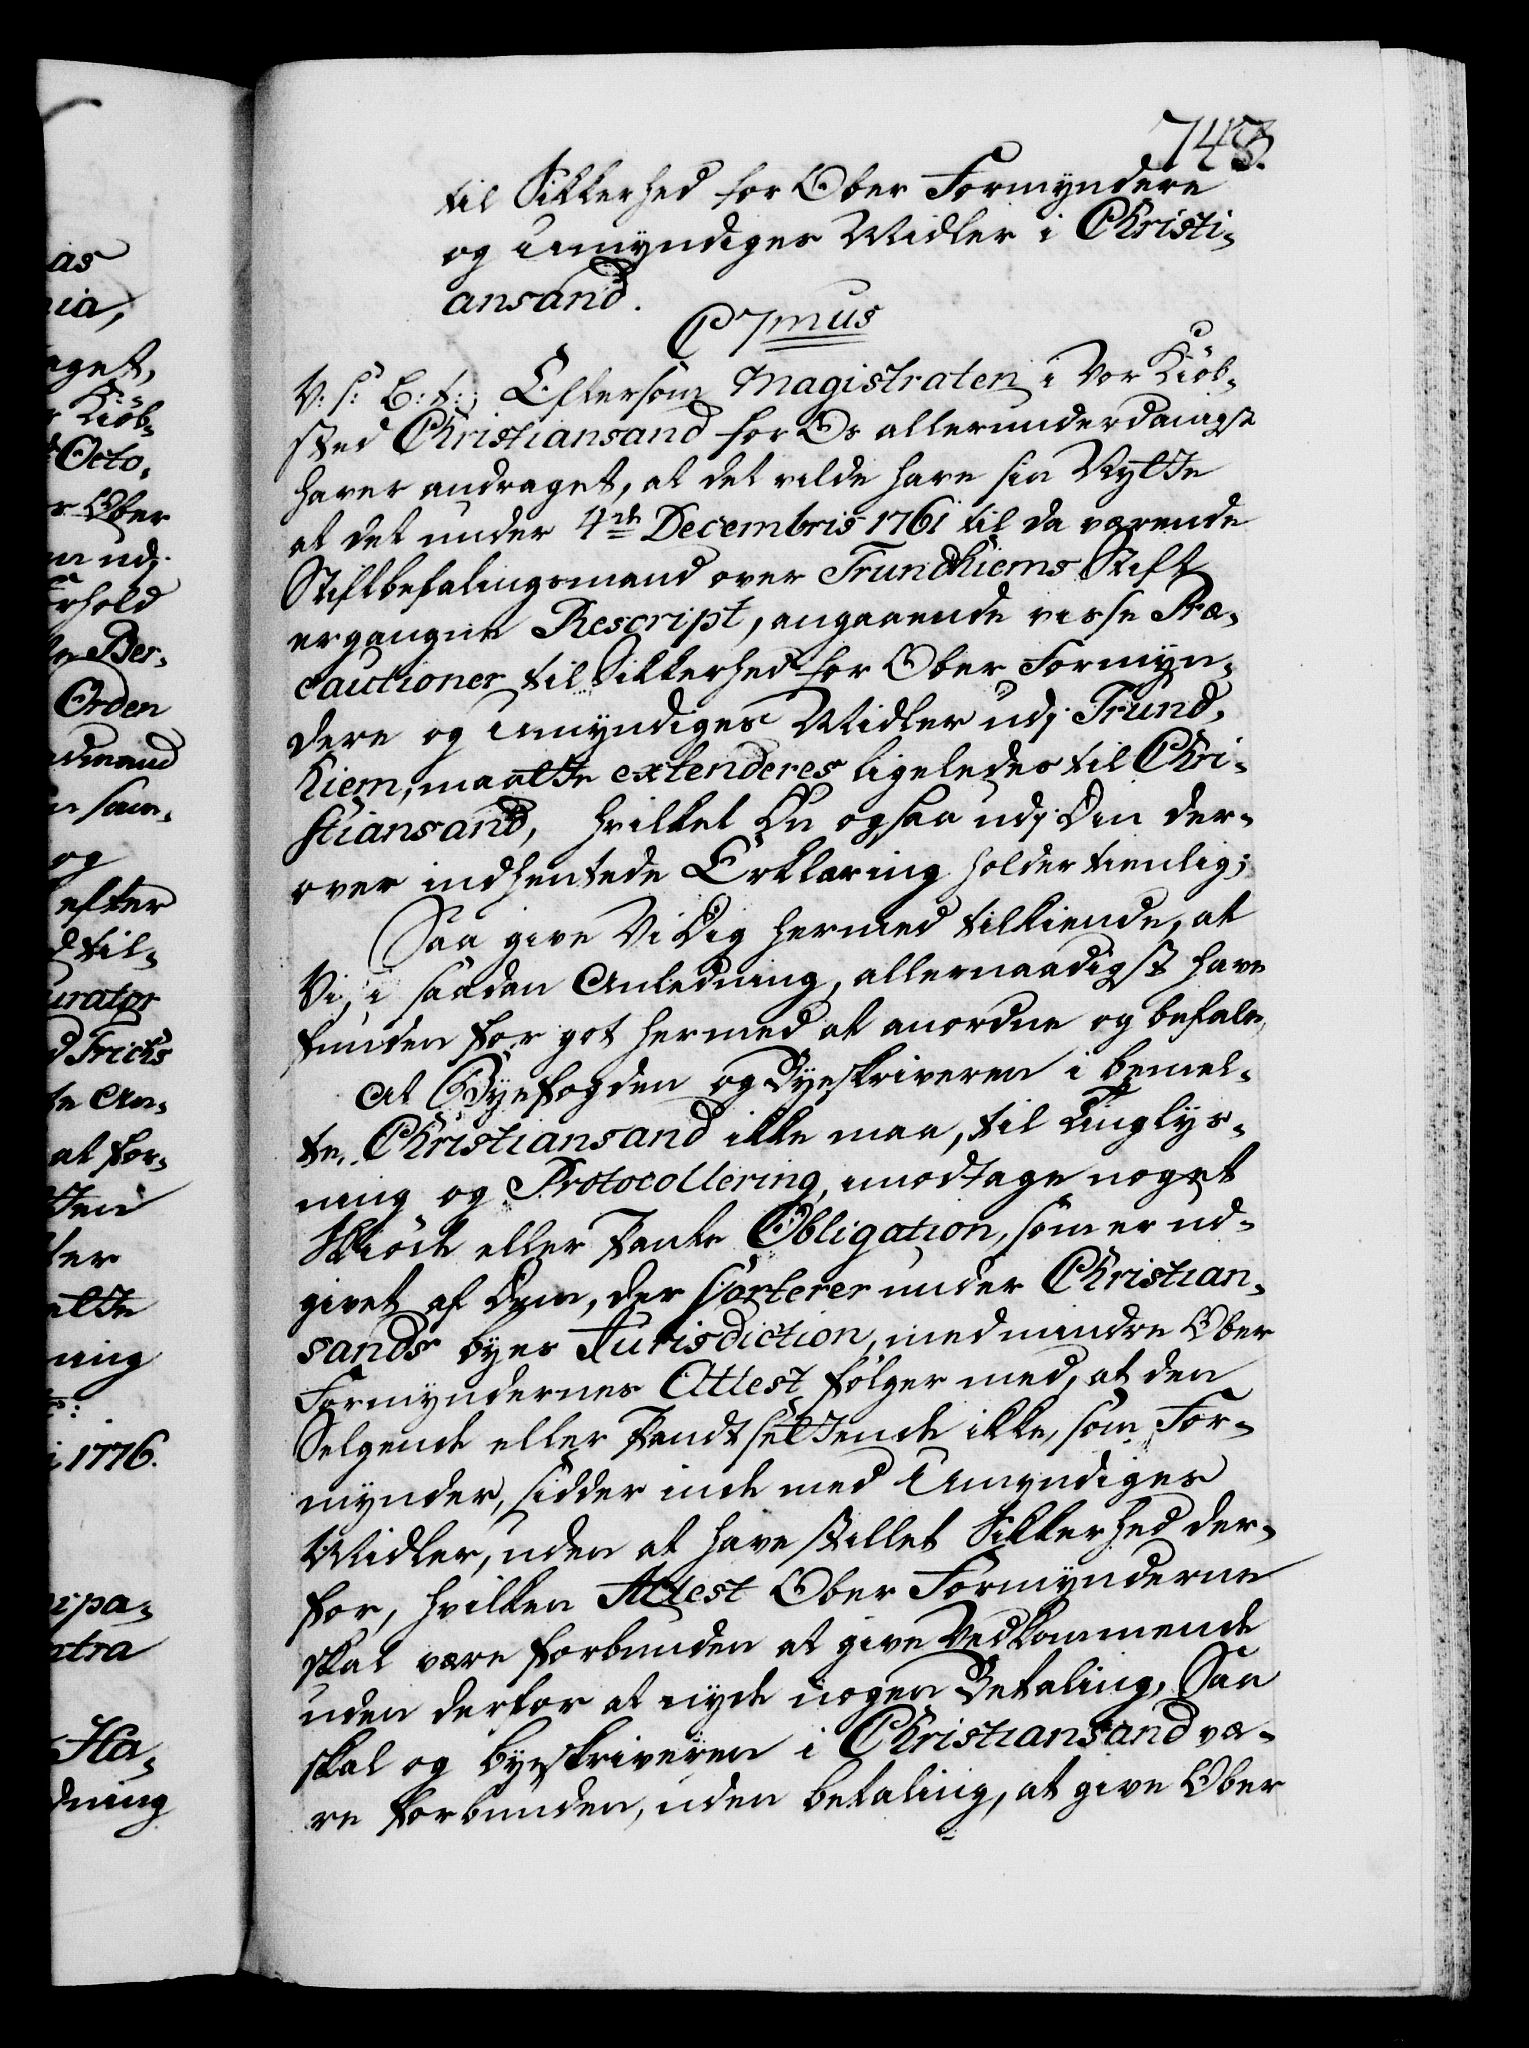 748.
til Sikkerhed for Ober Formyndere
og Umyndiges Midler i Christi-
ansand.
C 7mus
V: S: B: t:; Eftersom Magistraten i Vor Kiøb-
sted Christiansand for Os allerunderdanigst
haver andraget, at det vilde have sin Nytte
at det under 4de Decembris 1761 til da værende
Stiftbefalingsmand over Trundhiems Stift
ergangne Rescript, angaaende visse Præ-
cautioner til Sikkerhed for Ober Formyn-
dere og Umyndiges Midler udj Trund-
hiem, maatte extenderes ligeledes til Chri-
stiansand, hvilket Du ogsaa udj Din der-
over indhentede Erklæring holder tienlig;
Saa give Vi Dig hermed tilkiende, at
Vi, i saadan Anledning, allernaadigst have
funden for got hermed at anordne og befale,
At Byefogden og Byeskriveren i bemel-
te Christiansand ikke maa, til Tinglys-
ning og Protocollering, imodtage noget
Skiøde eller Pante Obligation, som er ud-
givet af Dem, der sorterer under Christian-
sands byes Jurisdiction, med mindre Ober
Formyndernes Attest følger med, at den
Selgende eller Pandtsettende ikke, som For-
mynder, sidder inde med Umyndiges
Midler, uden at have stillet Sikkerhed der-
for, hvilken Attest Ober Formynderne
skal være forbunden at give Vedkommende
uden derfor at nyde nogen Betaling, Saa
skal og byeskriveren i Christiansand væ-
re forbunden, uden betaling, at give Ober
as
nia,
aget,
r Kiøb-
t Octo-
r Ober
n udj
rhold
te Ber-
Orden
dmand
n sam-
og
efter
d til-
urator
d Friels
te An-
at for-
ter
atte
ning
i 1776.
ripa-
xtra
Ha-
dning